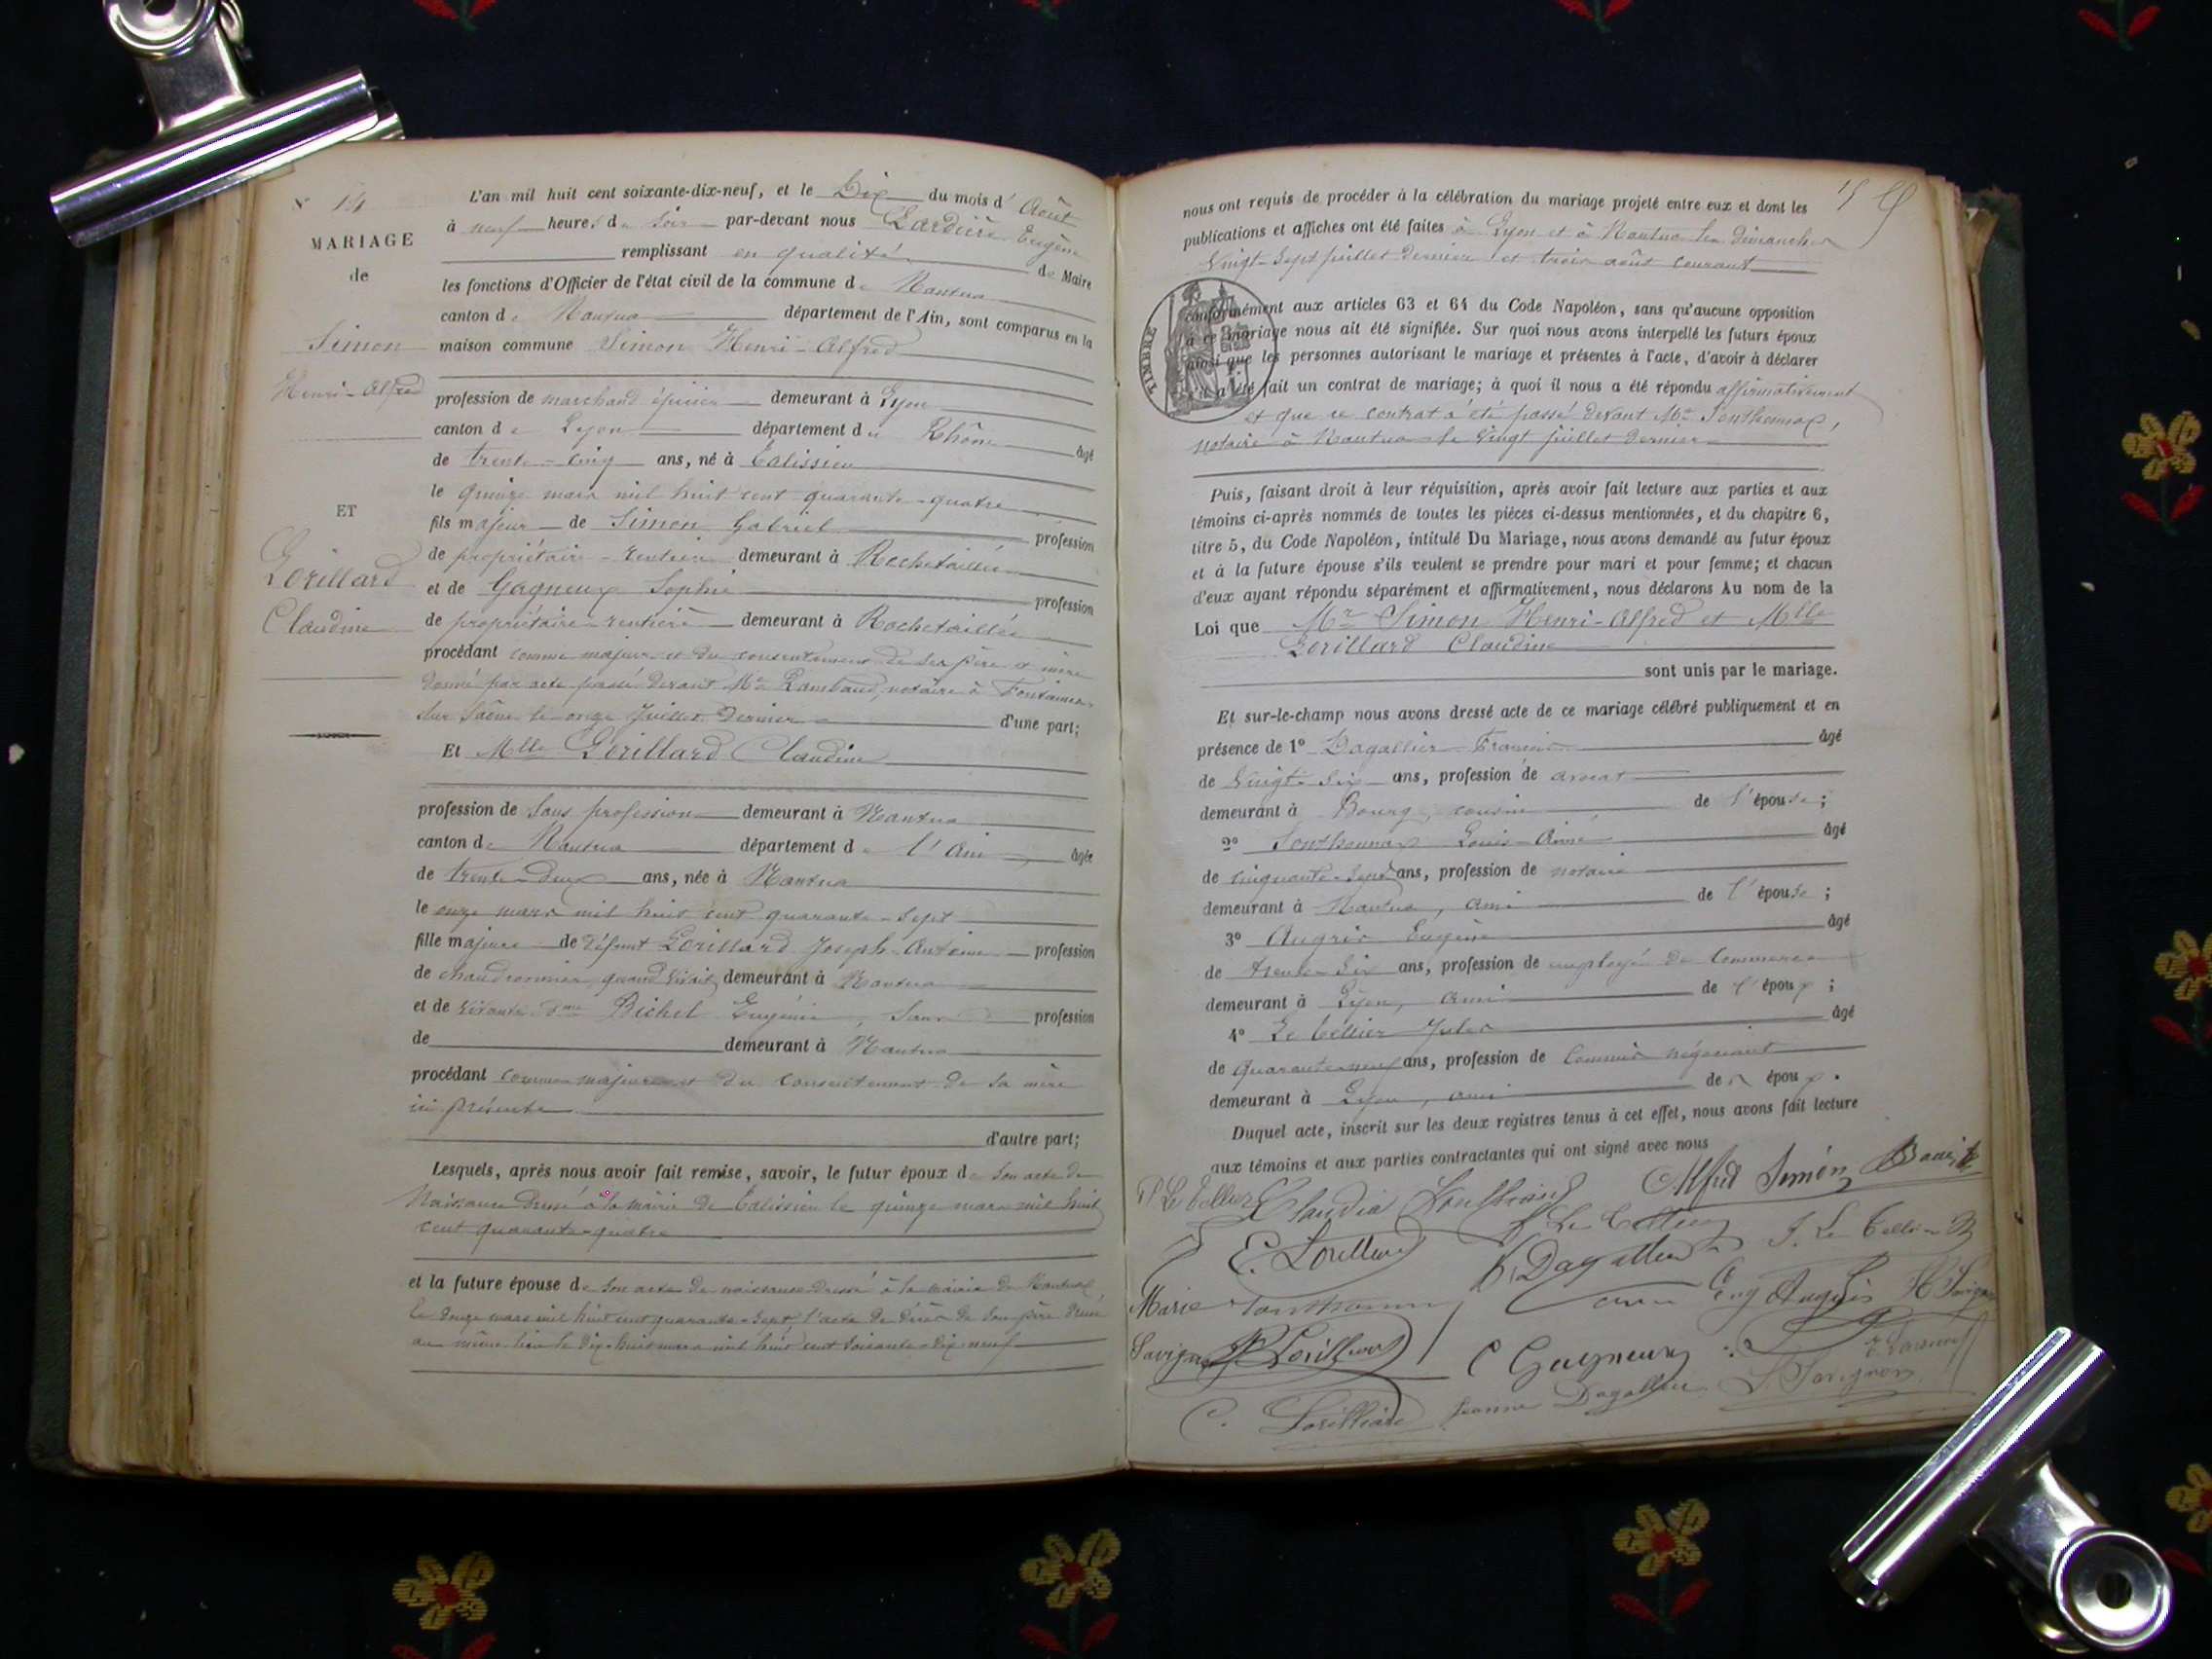 N° 14
MARIAGE
de
Simon
Henri-Alfred
ET
Lorillard
Claudine
L'an mil huit cent soixante-dix-neuf, et le Dix du mois d' Août
à neuf heures du soir par-devant nous Eugène
remplissant en qualité de Maire
les fonctions d'Officier de l'état civil de la commune de Nantua
canton de Nantua département de l'Ain, sont comparus en la
maison commune Simon Henri-Alfred
profession de marchand épicier demeurant à Lyon
canton de Lyon département du Rhône âgé
de trente-cinq ans, né à Talissieu
le quinze mars mil huit cent quarante-quatre
fils majeur de Simon Gabriel profession
de propriétaire-rentier demeurant à Rochetaillée
et de Gagneux Sophie profession
de propriétaire-rentière demeurant à Rochetaillée
procédant comme majeur et du consentement de ses père et mère
donné par acte passé devant Me Rambaud, notaire à Fontaines-
sur Saône le onze Juillet dernier d'une part;
Et Mlle Lorillard Claudine
profession de sans profession demeurant à Nantua
canton de Nantua département de l'Ain âgée
de trente-deux ans, née à Nantua
le onze mars mil huit cent quarante-sept
fille majeure de défunt Lorillard Joseph-Antoine profession
de chaudronnier quand vivait demeurant à Nantua
et de vivante dme Bichet Eugénie, sans profession
de demeurant à Nantua
procédant comme majeure et du consentement de sa mère
ici présente
d'autre part;
Lesquels, après nous avoir fait remise, savoir, le futur époux de son acte de
Naissance dressé à la mairie de Talissieu le quinze mars mil huit
cent quarante-quatre
et la future épouse de son acte de naissance dressé à la mairie de Nantua
le onze mars mil huit cent quarante-sept, l'acte de décès de son père dressé
au même lieu le dix-huit mars mil huit cent soixante-dix-neuf
15
nous ont requis de procéder à la célébration du mariage projeté entre eux et dont les
publications et affiches ont été faites à Lyon et à Nantua les dimanches
vingt-sept juillet dernier et trois août courant
TIMBRE
conformément aux articles 63 et 64 du Code Napoléon, sans qu'aucune opposition
à ce mariage nous ait été signifiée. Sur quoi nous avons interpellé les futurs époux
ainsi que les personnes autorisant le mariage et présentes à l'acte, d'avoir à déclarer
s'il a été fait un contrat de mariage; à quoi il nous a été répondu affirmativement
et que ce contrat a été passé devant Me Sonthonnax,
notaire à Nantua le vingt juillet dernier
Puis, faisant droit à leur réquisition, après avoir fait lecture aux parties et aux
témoins ci-après nommés de toutes les pièces ci-dessus mentionnées, et du chapitre 6,
titre 5, du Code Napoléon, intitulé Du Mariage, nous avons demandé au futur époux
et à la future épouse s'ils veulent se prendre pour mari et pour femme; et chacun
d'eux ayant répondu séparément et affirmativement, nous déclarons Au nom de la
Loi que Mr Simon Henri-Alfred et Mlle
Lorillard Claudine
sont unis par le mariage.
Et sur-le-champ nous avons dressé acte de ce mariage célébré publiquement et en
présence de 1° Dagallier Francis âgé
de vingt-six ans, profession de avocat
demeurant à Bourg, cousin de l'épouse;
2° Sonthonnax Louis-Aimé âgé
de cinquante-sept ans, profession de notaire
demeurant à Nantua, ami de l'épouse;
3° Augris Eugène âgé
de trente-six ans, profession de employé de commerce
demeurant à Lyon, ami de l'époux;
4° Le Tellier Jules âgé
de quarante-neuf ans, profession de commis négociant
demeurant à Lyon, ami de l'époux.
Duquel acte, inscrit sur les deux registres tenus à cet effet, nous avons fait lecture
aux témoins et aux parties contractantes qui ont signé avec nous
Alfred Simon
Le Tellier Claudia Sonthonax
Le Tellier J. Le Tellier
E. Lorillard Dagallier
Marie Sonthonnax Eug Augris
Savigny Lorillard C Gagneux
C. Lorilliard Jeanne Dagallier